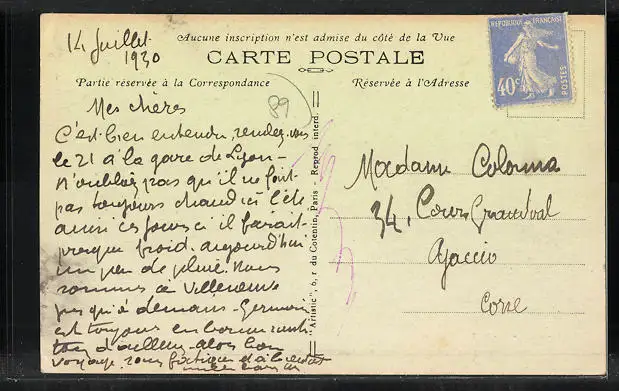 14 Juillet
1930
Aucune inscription n'est admise du côté de la Vue
CARTE POSTALE
Partie réservée à la Correspondance
Réservée à l'Adresse
REPUBLIQUE FRANÇAISE
40c
POSTES
89
Mes chères
C'est bien entendu, rendez-vous
le 21 à la gare de Lyon -
n'oubliez pas qu'il ne fait
pas toujours chaud ici l'été
ainsi ces jours ci il faisait
presque froid. aujourd'hui
un peu de pluie. Nous
sommes à Villeneuve
demain - Germain
est toujours en bonne santé
d'ailleurs - alors bon
voyage
Madame Colonna
34, Cours Grandval
Ajaccio
Corse
"Artistic", 6, r du Cotentin, Paris - Reprod interd.